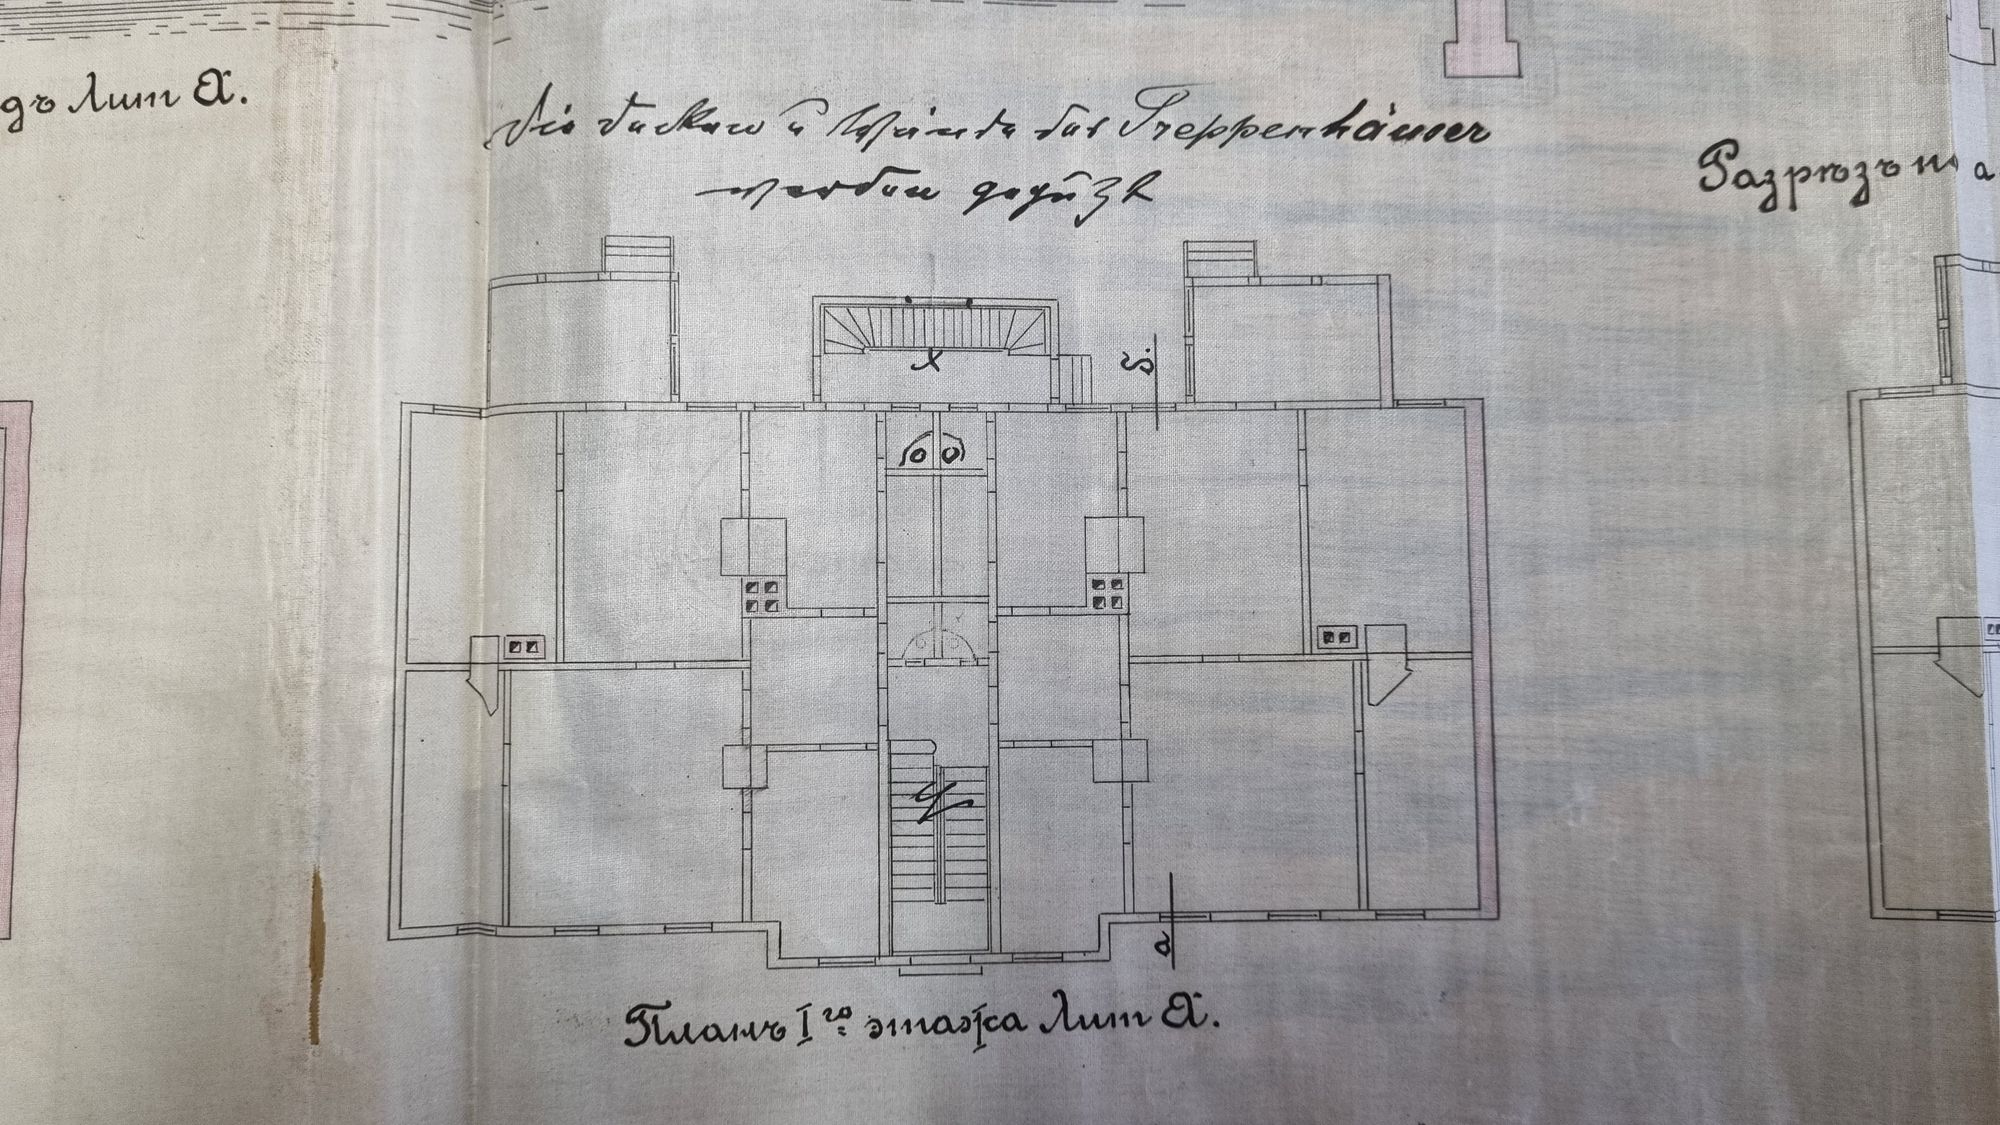 дъ Лит А.
Die Decken u Wände der Treppenhäuser
werden gegipst
Разрѣзъ по а
б.
а
Планъ I го этажа Лит А.